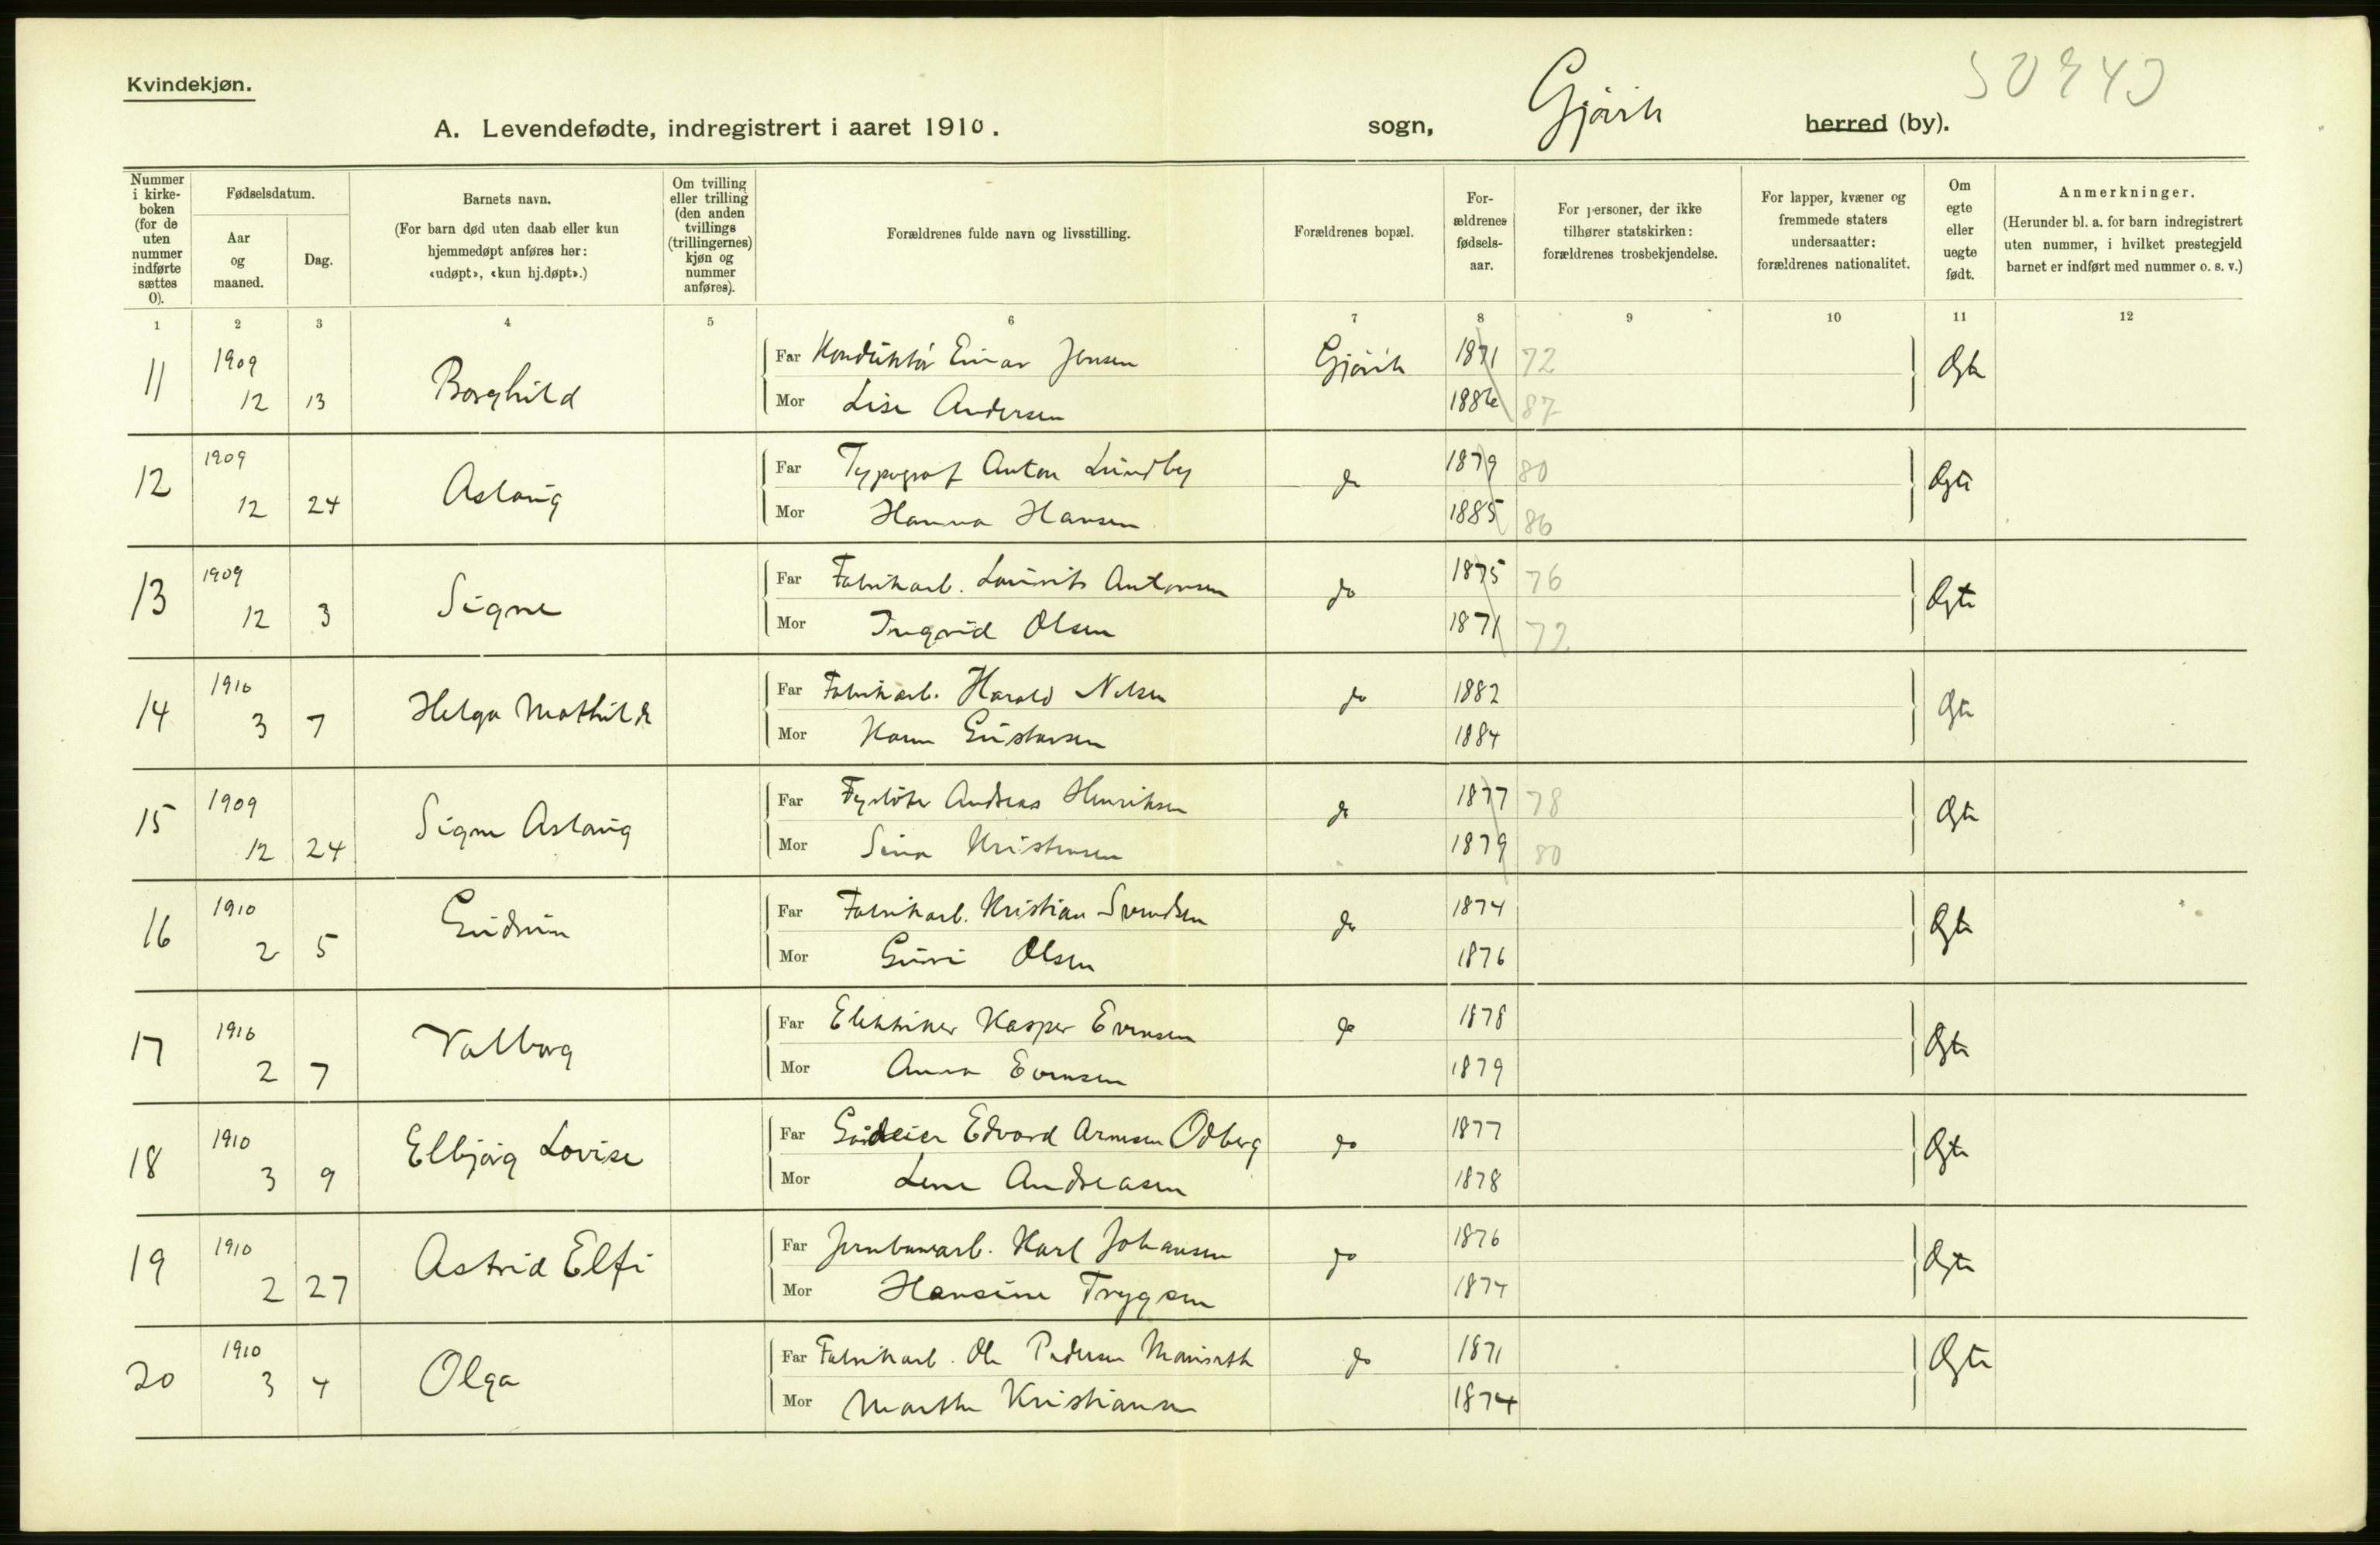 Kvindekjøn.
A. Levendefødte, indregistrert i aaret 1910.
sogn, Gjøvik herred (by).
Nummer i kirkeboken (for de uten nummer indførte sættes 0).
Fødselsdatum.
Aar og maaned.
Dag.
Barnets navn.
(For barn død uten daab eller kun hjemmedøpt anføres her: «udøpt», «kun hj.døpt».)
Om tvilling eller trilling (den anden tvillings (trillingernes) kjøn og nummer anføres).
Forældrenes fulde navn og livsstilling.
Forældrenes bopæl.
Forældrenes fødselsaar.
For personer, der ikke tilhører statskirken: forældrenes trosbekjendelse.
For lapper, kvæner og fremmede staters undersaatter: forældrenes nationalitet.
Om egte eller uegte født.
Anmerkninger.
(Herunder bl. a. for barn indregistrert uten nummer, i hvilket prestegjeld barnet er indført med nummer o. s. v.)
1 2 3 4 5 6 7 8 9 10 11 12
11 1909 12 13 Borghild
Far Konduktør Einar Jensen Gjøvik 1871 72 Egte
Mor Lise Andersen 1886 87
12 1909 12 24 Aslaug
Far Typograf Anton Lundby do 1879 80 Egte
Mor Hanna Hansen 1885 86
13 1909 12 3 Signe
Far Fabrikarb. Laurits Antonsen do 1875 76 Egte
Mor Ingrid Olsen 1871 72
14 1910 3 7 Helga Mathilde
Far Fabrikarb. Harald Nilsen do 1882 Egte
Mor Karen Gustavsen 1884
15 1909 12 24 Signe Aslaug
Far Fyrbøter Andreas Henriksen do 1877 78 Egte
Mor Sina Kristensen 1879 80
16 1910 2 5 Gudrun
Far Fabrikarb. Kristian Svendsen do 1874 Egte
Mor Guri Olsen 1876
17 1910 2 7 Valborg
Far Elektriker Kasper Evensen do 1878 Egte
Mor Anna Evensen 1879
18 1910 3 9 Elbjørg Lovise
Far Edvard Arnesen Odberg do 1877 Egte
Mor Lene Andreasen 1878
19 1910 2 27 Astrid Elfi
Far Jernbanearb. Karl Johansen do 1876 Egte
Mor Hansine Trygsen 1874
20 1910 3 4 Olga
Far Fabrikarb. Ole Pedersen do 1871 Egte
Mor Marthe Kristiansen 1874